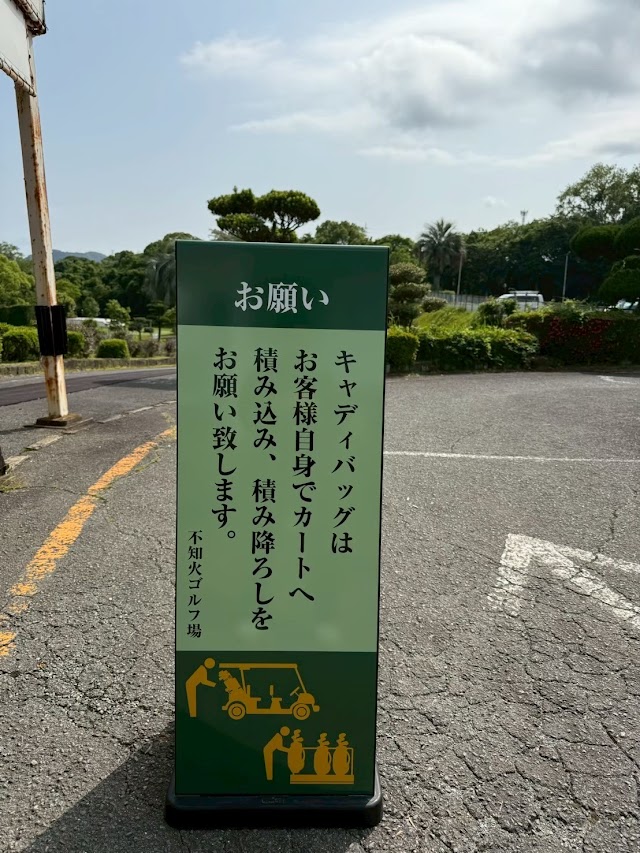 お願い
キャディバッグは
お客様自身でカートへ
積み込み、積み降ろしを
お願い致します。
不知火ゴルフ場